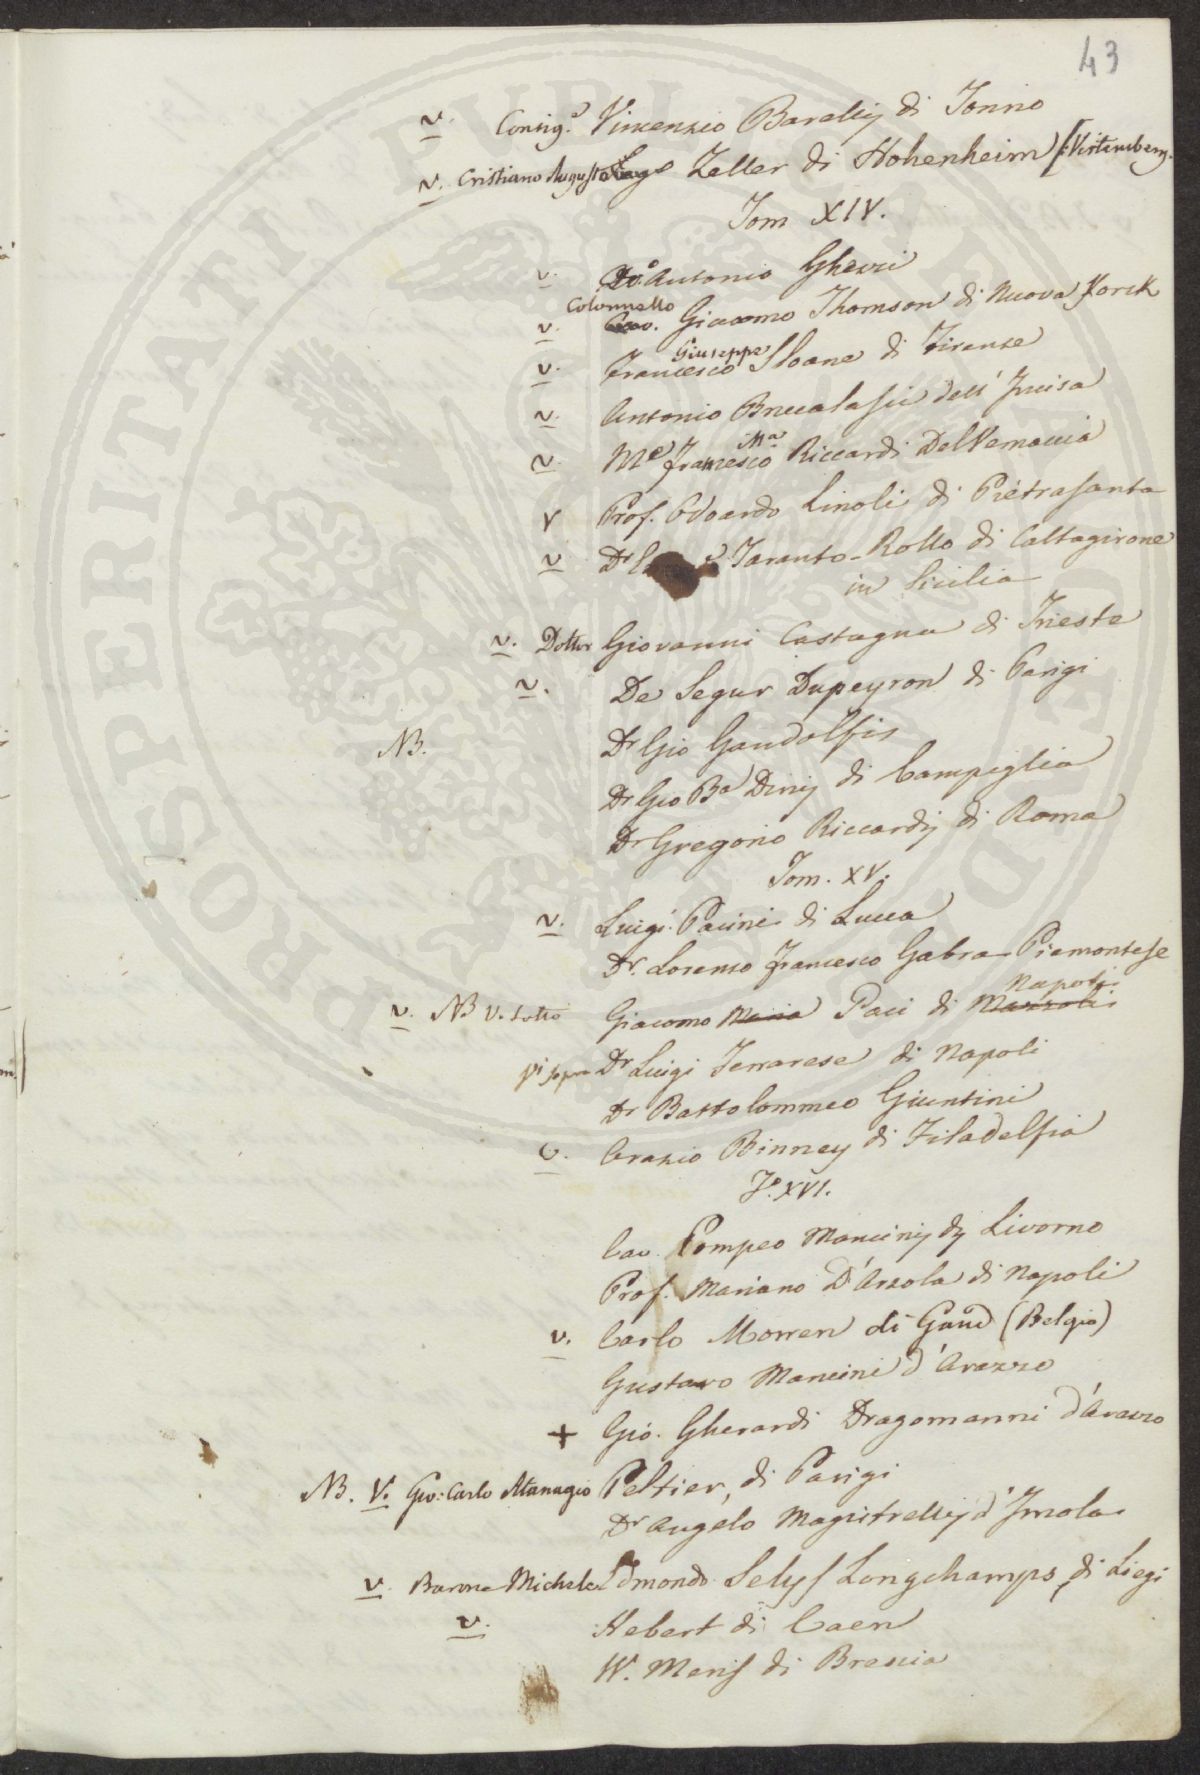 43
v. Consig.e Vincenzio Baralij di Torino
v. Cristiano Augusto Zeller di Hohenheim (Virtemberg.
Tom XIV.
v. Antonio Gherri
Colonnello
v. Giacomo Thomson di Nuova Yorck
Giuseppe
v. Francesco Sloane di Firenze
v. Antonio Brucalassi dell' Incisa
Ma
v. Me Francesco Riccardi Del Vernaccia
v Prof. Odoardo Linoli di Pietrasanta
v Dr Taranto-Rollo di Caltagirone
in Sicilia
v. Dottor Giovanni Castagna di Trieste
v. De Segur Dupeyron di Parigi
NB. Dr Gio Gandolfis
Dr Gio Ba Dinij di Campiglia
Dr Gregorio Riccardij di Roma
Tom. XV.
v. Luigi Pacini di Lucca
Dr. Lorenzo Francesco Gabra Piemontese
Napoli
v. NB V. sotto Giacomo Maria Paci di Mazzoli
Vi sopra Dr Luigi Ferrarese di Napoli
Dr Bartolommeo Giuntini
v. Orazio Binney di Filadelfia
To. XVI.
Cav. Pompeo Mancinij di Livorno
Prof. Mariano D'Arzola di Napoli
v. Carlo Morren di Gand (Belgio)
Gustavo Mancini d'Arezzo
+ Gio. Gherardi Dragomanni d'Arezzo
NB. V. Gio: Carlo Atanagio Peltier, di Parigi
Dr Angelo Magistrellij d'Imola
v. Barone Michele Edmondo Selys Longchamps, di Liegi
v. Hebert di Caen
W. Menis di Brescia
PROSPERITATI PUBLICAE AUGENDAE